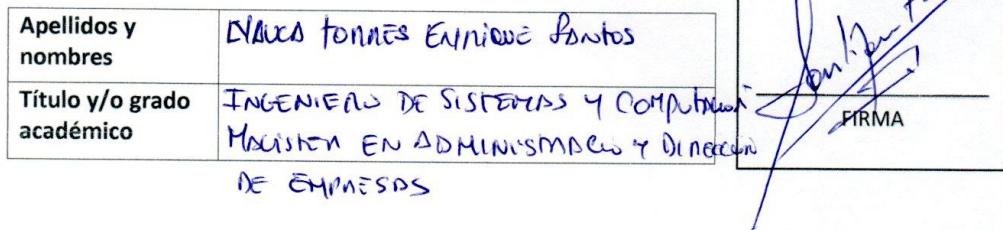 Apellidos y
nombres
ÑAUCA TORRES ENRIQUE SANTOS
Título y/o grado
académico
INGENIERO DE SISTEMAS Y COMPUTACIÓN
MAGISTER EN ADMINISTRACION Y DIRECCION
DE EMPRESAS
FIRMA